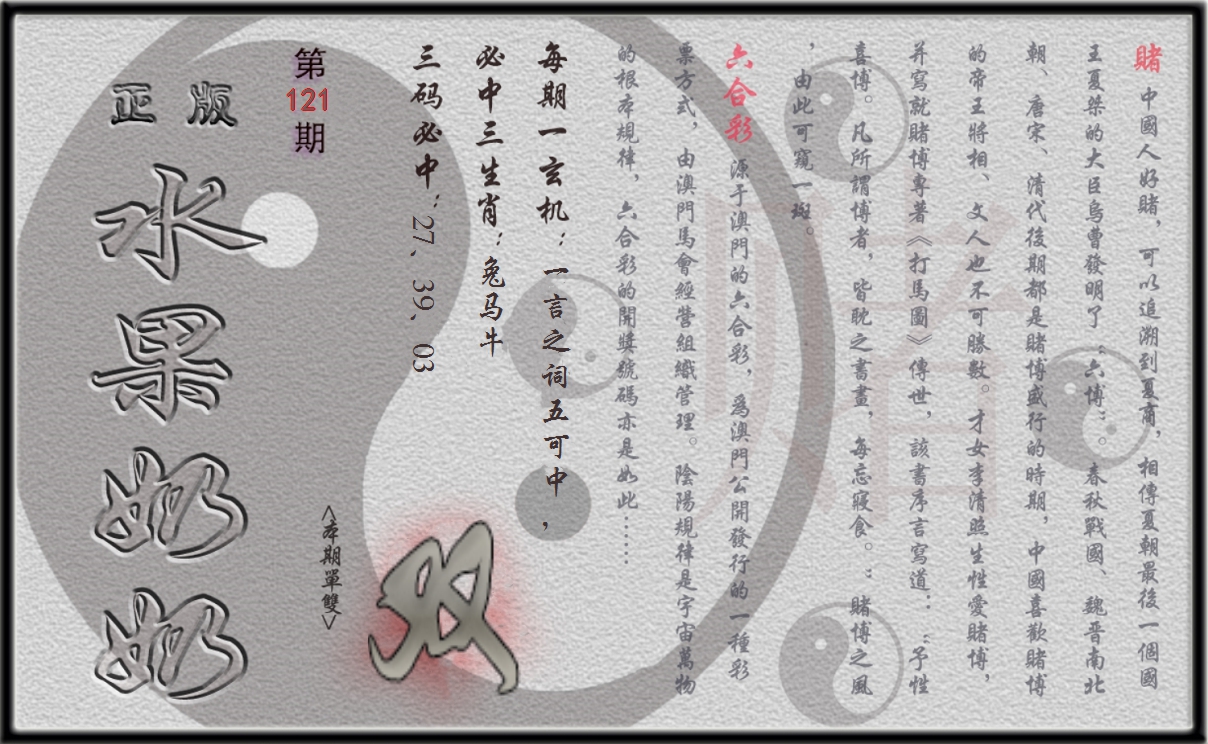 賭 中國人好賭，可以追溯到夏商，相傳夏朝最後一個國
王夏桀的大臣烏曹發明了“六博”。春秋戰國、魏晋南北
朝、唐宋、清代後期都是賭博盛行的時期，中國喜歡賭博
的帝王將相、文人也不可勝數。才女李清照生性愛賭博，
并寫就賭博專著《打馬圖》傳世，該書序言寫道：“予性
喜博。凡所謂博者，皆耽之書畫，每忘寢食。：賭博之風
，由此可窺一斑。
六合彩 源于澳門的六合彩，爲澳門公開發行的一種彩
票方式，由澳門馬會經營組織管理。陰陽規律是宇宙萬物
的根本規律，六合彩的開獎號碼亦是如此……
每期一玄机：一言之词五可中，
必中三生肖：兔马牛
三码必中：27、39、03
双
<本期單雙>
第121期
正版
水果奶奶
賭